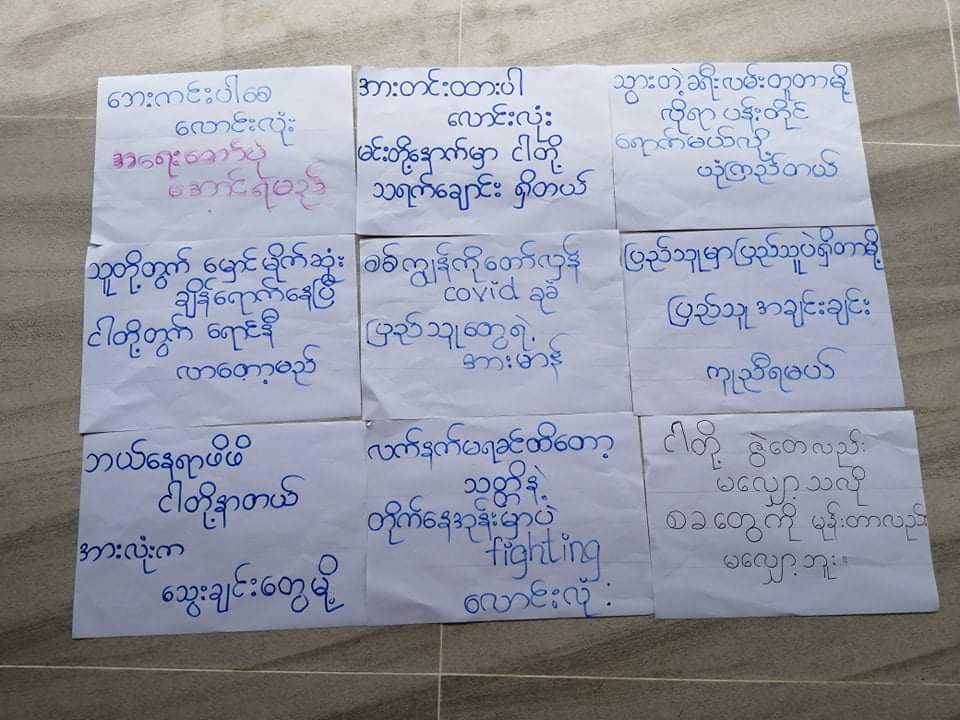 ဘေးကင်းပါစေ
လောင်းလုံး
အရေးတော်ပုံ
အောင်ရမည်
အားတင်းထားပါ
လောင်းလုံး
မင်းတို့နောက်မှာ ငါတို့
သရက်ချောင်း ရှိတယ်
သွားတဲ့ခရီးလမ်းတူတာမို့
လိုရာ ပန်းတိုင်
ရောက်မယ်လို့
ယုံကြည်တယ်
သူတို့တွက် မှောင်မိုက်ဆုံး
ချိန်ရောက်နေပြီ
ငါတို့တွက် ရောင်နီ
လာတော့မည်
စစ်ကျွန်ကိုတော်လှန်
covid ခုခံ
ပြည်သူတွေရဲ့
အားမာန်
ပြည်သူမှာပြည်သူပဲရှိတာမို့
ပြည်သူ အချင်းချင်း
ကူညီရမယ်
ဘယ်နေရာဖိဖိ
ငါတို့နာတယ်
အားလုံးက
သွေးချင်းတွေမို့
လက်နက်မရခင်ထိတော့
သတ္တိနဲ့
တိုက်နေအုန်းမှာပဲ
fighting
လောင်းလုံး
ငါတို့ ဇွဲတေလည်း
မလျှော့သလို
စခတွေကို မုန်းတာလည်း
မလျှော့ဘူး။